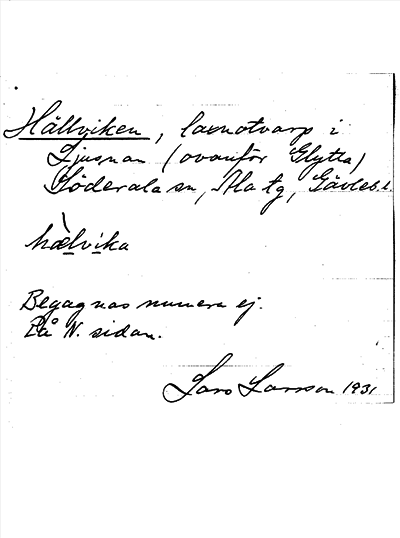 Hällviken, laxnotvarp i
Ljusnan (ovanför Glytta)
Söderala sn, Ala tg, Gävleb. l.
hælvika
Begagnas numera ej.
På N. sidan.
Lars Larsson 1931